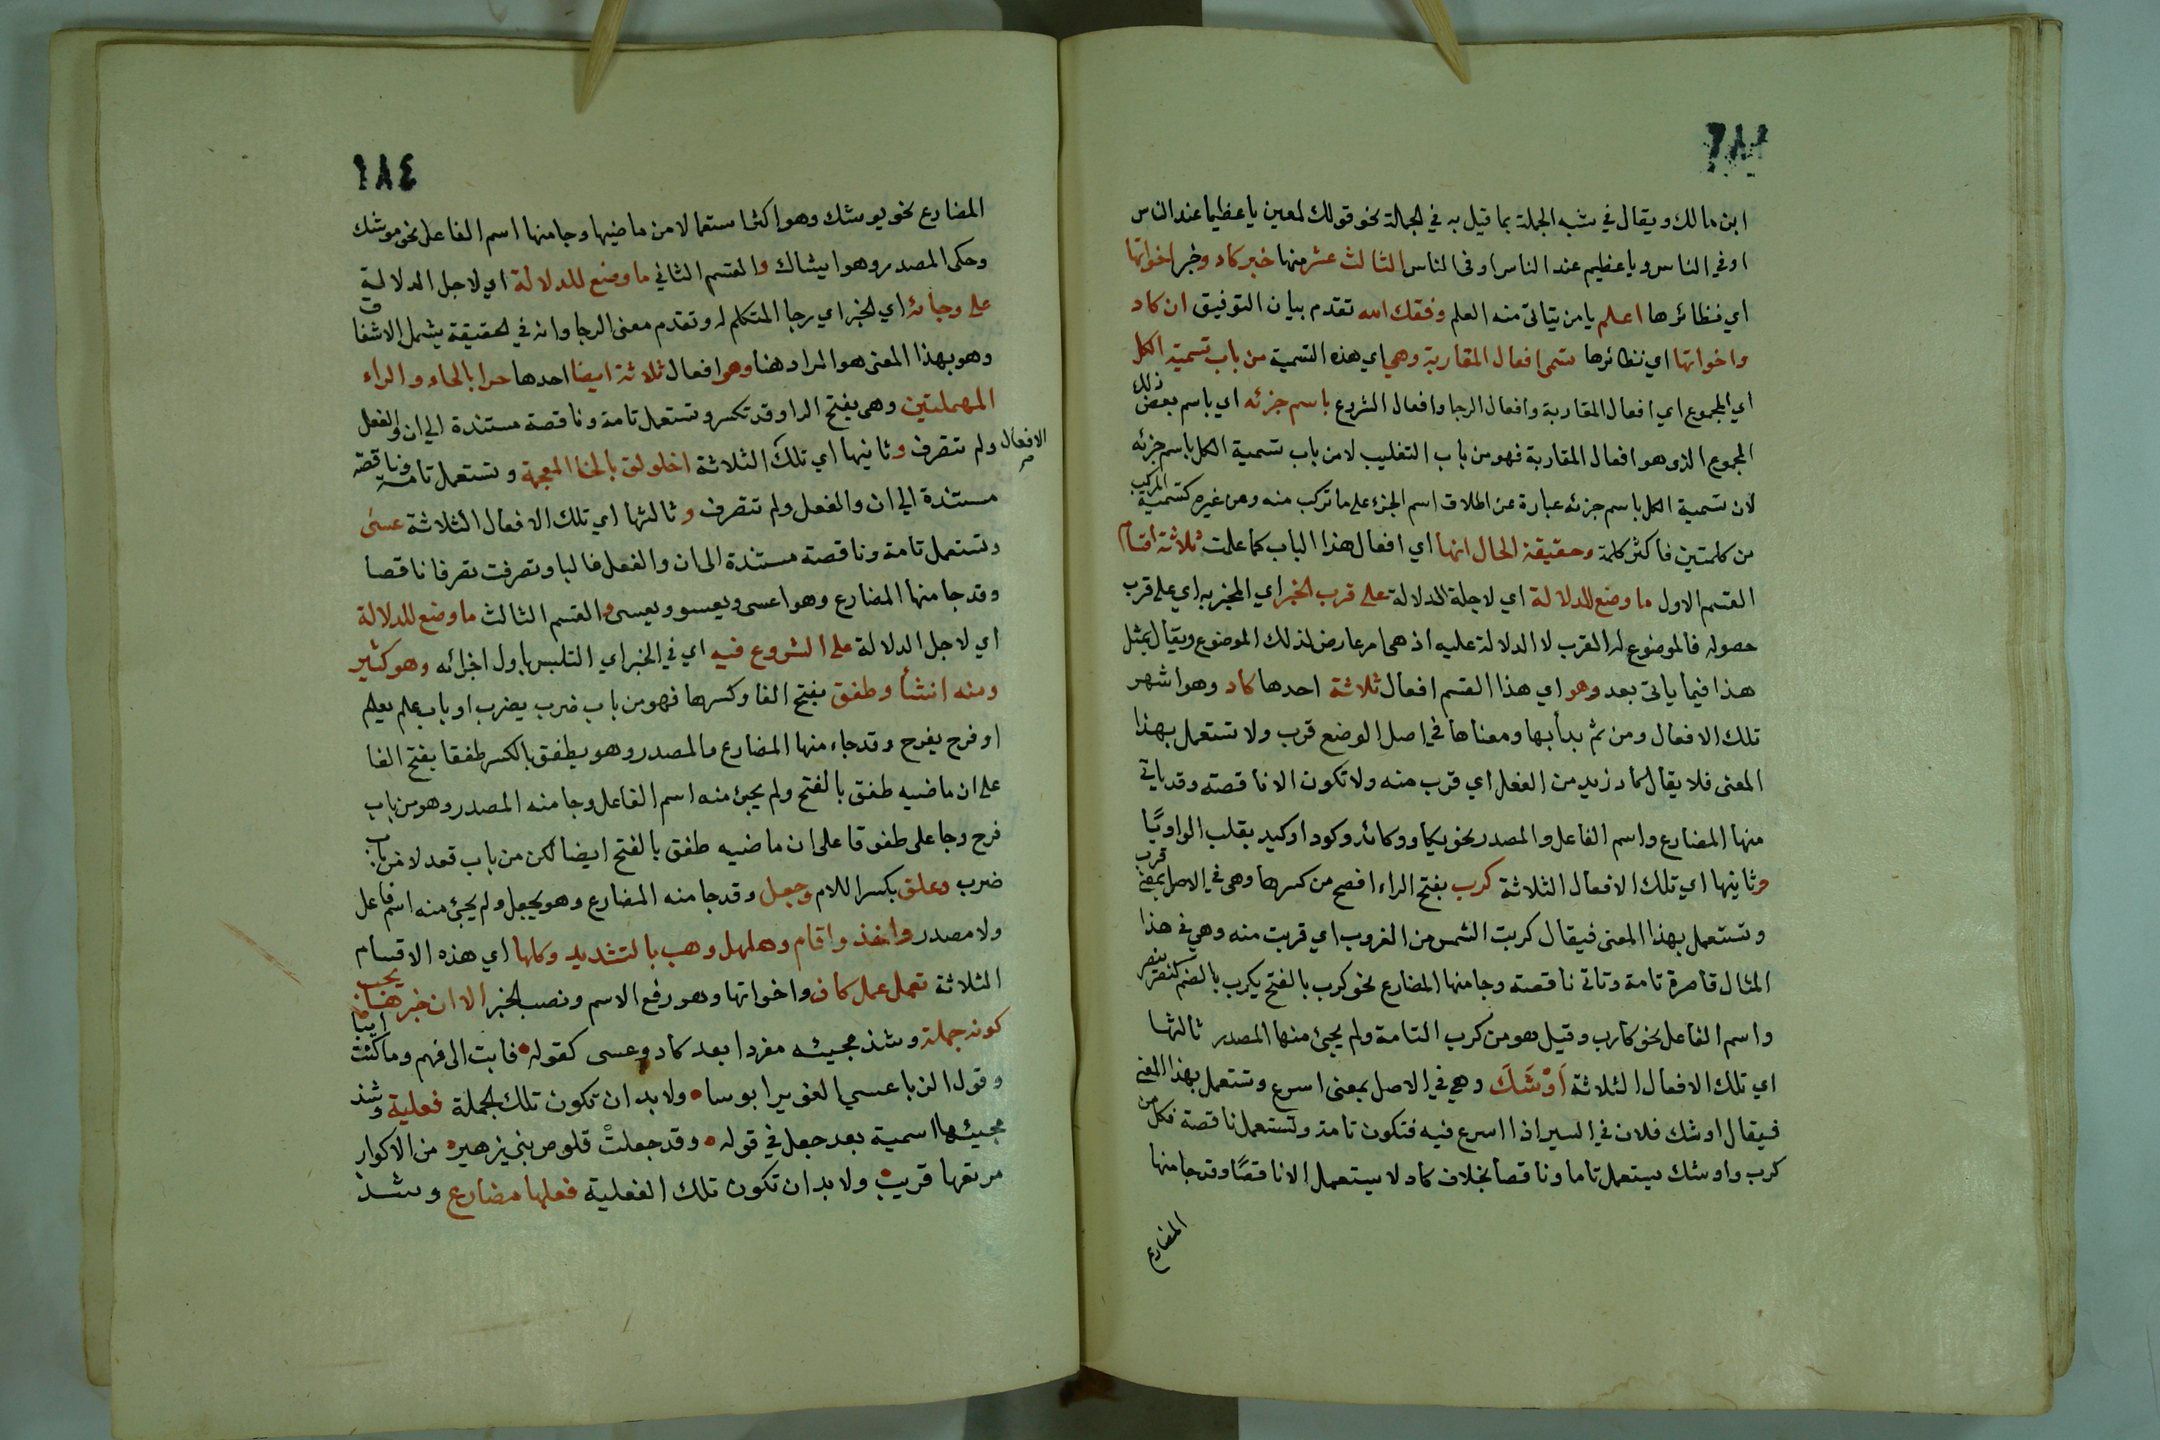 ٢٨٣
ابن مالك ويقال في شبه الجملة بما قيل به في الجملة نحو قولك لمعين يا عظيما عند الناس
او في الناس ويا عظيم عند الناس او في الناس الثالث عشر منها خبر كاد وخبر اخواتها
اي نظائرها اعلم يا من يتاتى منه العلم وفقك الله تقدم بيان التوفيق ان كاد
واخواتها اي نظائرها تسمى افعال المقاربة وهي اي هذه التسمية من باب تسمية الكل
اي المجموع اي افعال المقاربة وافعال الرجا وافعال الشروع باسم جزئه اي باسم بعض ذلك
المجموع الذي هو افعال المقاربة فهو من باب التغليب لا من باب تسمية الكل باسم جزئه
لان تسمية الكل باسم جزئه عبارة عن اطلاق اسم الجزء على ما تركب منه ومن غيره كتسمية المركب
من كلمتين فاكثر كلمة وحقيقة الحال انها اي افعال هذا الباب كما علمت ثلاثة اقسام
القسم الاول ما وضع للدلالة اي لاجلة الدلالة على قرب الخبر اي المخبر به اي على قرب
حصوله فالموضوع له القرب لا الدلالة عليه اذ هي امر عارض لذلك الموضوع ويقال بمثل
هذا فيما ياتي بعد وهو اي هذا القسم افعال ثلاثة احدها كاد وهو اشهر
تلك الافعال ومن ثم بدأ بها ومعناها في اصل الوضع قرب ولا تستعمل بهذا
المعنى فلا يقال كاد زيد من الفعل اي قرب منه ولا تكون الا ناقصة وقد ياتي
منها المضارع واسم الفاعل والمصدر نحو يكاد وكائد وكود او كيد بقلب الواو يًا
وثانيها اي تلك الافعال الثلاثة كرب بفتح الراء افصح من كسرها وهي في الاصل بمعنى قرب
وتستعمل بهذا المعنى فيقال كربت الشمس من الغروب اي قربت منه وهي في هذا
المثال قاصرة تامة وتاتي ناقصة وجا منها المضارع نحو كرب بالفتح يكرب بالضم كنصر ينصر
واسم الفاعل نحو كارب وقيل هو من كرب التامة ولم يجئ منها المصدر ثالثها
اي تلك الافعال الثلاثة أَوْشَكَ وهي في الاصل بمعنى اسرع وتستعمل بهذا المعنى
فيقال اوشك فلان في السير اذا اسرع فيه فتكون تامة وتستعمل ناقصة فكل من
كرب واوشك يستعمل تاما وناقصا بخلاف كاد لا يستعمل الا ناقصًا وقد جا منها
المضارع
٢٨٤
المضارع نحو يوشك وهو اكثر استعمالا من ماضيها وجا منها اسم الفاعل نحو موشك
وحكى المصدر وهو ايشاك والقسم الثاني ما وضع للدلالة اي لاجل الدلالة
على رجائه اي الخبر اي رجا المتكلم له وتقدم معنى الرجا وانه في الحقيقة يشمل الاشفاق
وهو بهذا المعنى هو المراد هنا وهو افعال ثلاثة ايضا احدها حرا بالحاء والراء
المهملتين وهي بفتح الرا وقد تكسر وتستعمل تامة وناقصة مستندة الى ان والفعل
ولم تتصرف وثانيها اي تلك الثلاثة الافعال اخلولق بالخا المعجمة وتستعمل تامة وناقصة
مستندة الى ان والفعل ولم تتصرف وثالثها اي تلك الافعال الثلاثة عسى
وتستعمل تامة وناقصة مستندة الى ان والفعل غالبا وتصرفت تصرفا ناقصا
وقد جا منها المضارع وهو اعسى ويعسو ويعسى والقسم الثالث ما وضع للدلالة
اي لاجل الدلالة على الشروع فيه اي في الخبر اي التلبس باول اجزائه وهو كثير
ومنه انشأ وطفق بفتح الفا وكسرها فهو من باب ضرب يضرب او باب علم يعلم
او فرح يفرح وقد جاء منها المضارع والمصدر وهو يطفق بالكسر طفقا بفتح الفا
على ان ماضيه طفق بالفتح ولم يجئ منه اسم الفاعل وجا منه المصدر وهو من باب
فرح وجا على طفوقا على ان ماضيه طفق بالفتح ايضا لكن من باب قعد لا من باب
ضرب وعلق بكسر اللام وجعل وقد جا منه المضارع وهو يجعل ولم يجئ منه اسم فاعل
ولا مصدر واخذ واقام وهلهل وهب بالتشديد وكلها اي هذه الاقسام
الثلاثة تعمل عمل كان واخواتها وهو رفع الاسم ونصب الخبر الا ان خبر هذا يجب
كونه جملة وشذ مجيئه مفردا بعد كاد وعسى كقوله فابت الى فهم وما كنت ايبا
وقول الزبا عسى الغوير ابوسا ولا بد ان تكون تلك الجملة فعلية وشذ
مجيئها اسمية بعد جعل في قوله وقد جعلتْ قلوص بني زهير من الاكوار
مرتعها قريب ولا بد ان تكون تلك الفعلية فعلها مضارع وشذ